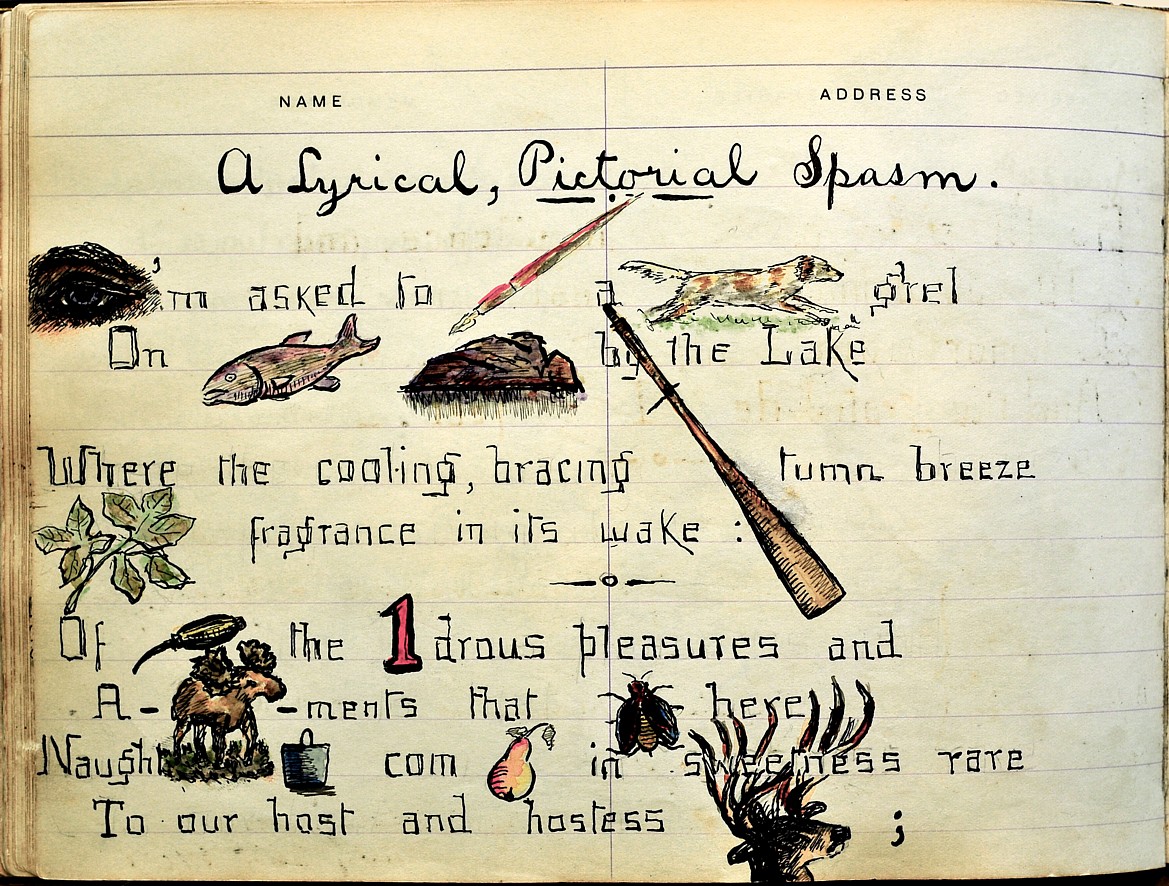 NAME ADDRESS
A Lyrical, Pictorial Spasm.
'm asked to a grel
On by the Lake
Where the cooling, bracing tumn breeze
fragrance in its wake :
Of the 1drous pleasures and
A- -ments that here
Naught com in sweetness rare
To our host and hostess ;